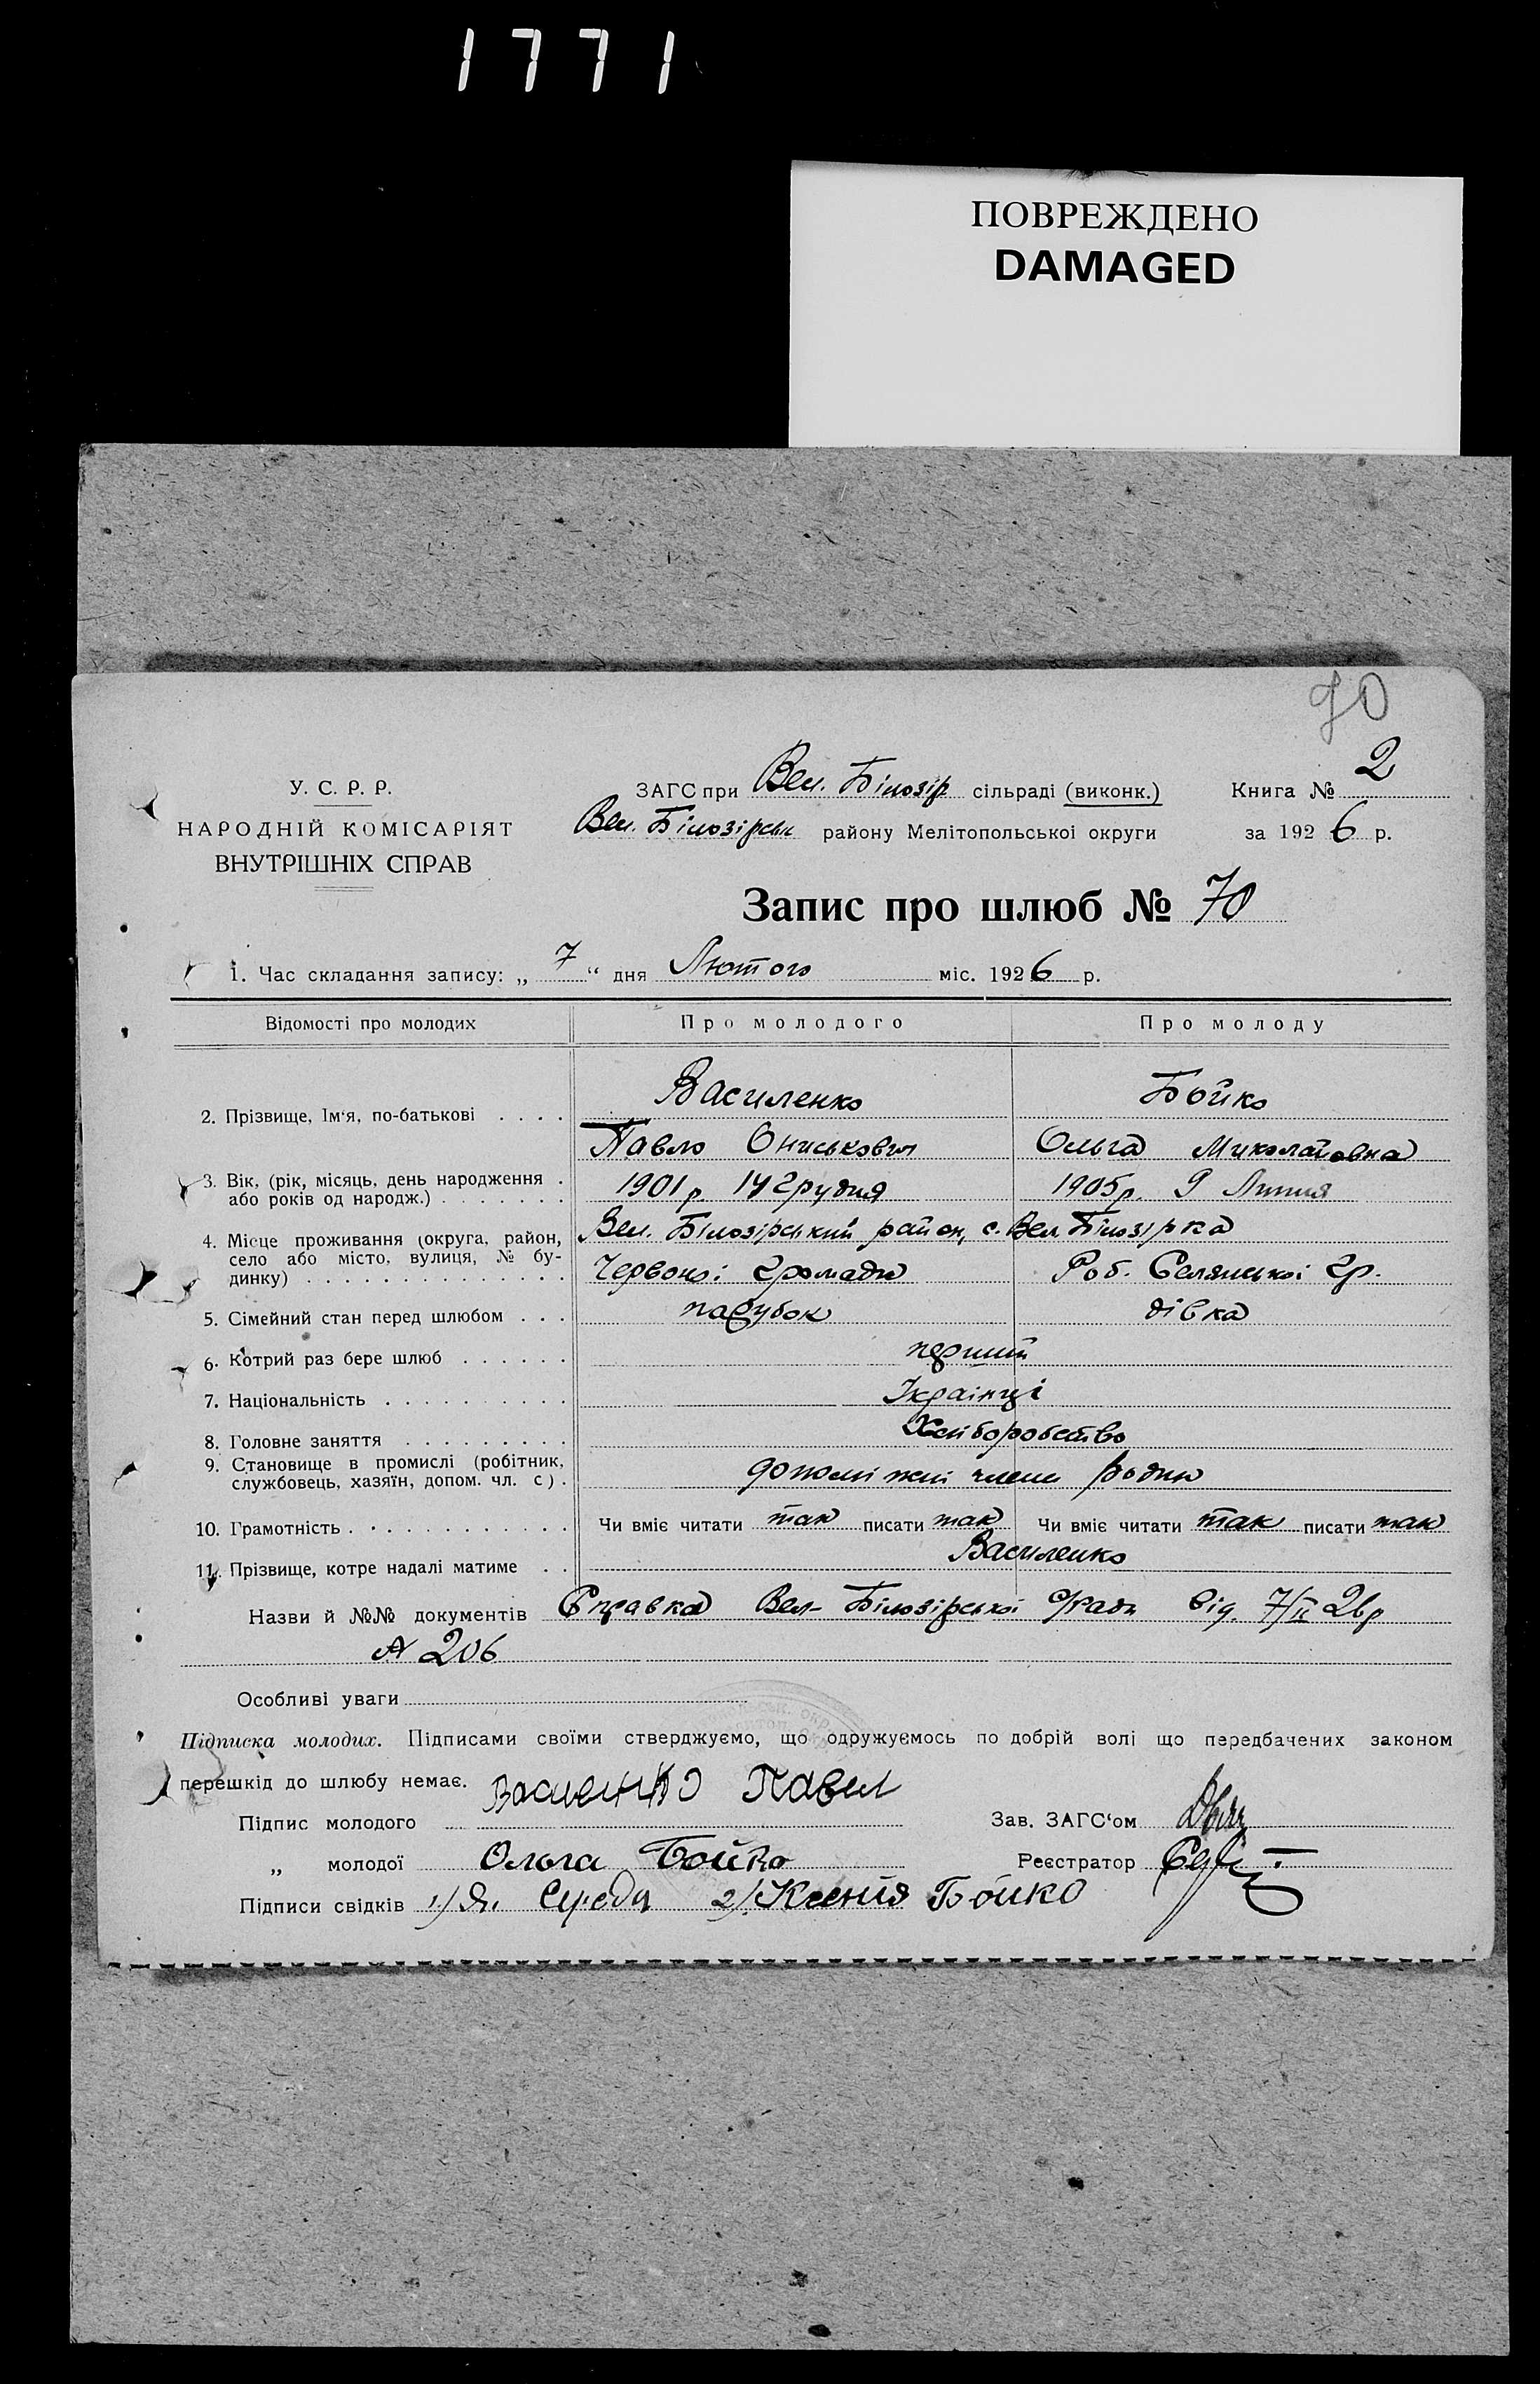 1771
ПОВРЕЖДЕНО
DAMAGED
70
У. С. Р. Р.
НАРОДНІЙ КОМІСАРІЯТ
ВНУТРІШНІХ СПРАВ
ЗАГС при Вел. Білозір сільраді (виконк.) Книга № 2
Вел. Білозірськ району Мелітопольської округи за 1926 р.
Запис про шлюб № 70
1. Час складання запису: „ 7 “ дня Лютого міс. 1926 р.
Відомості про молодих Про молодого Про молоду
2. Прізвище, Ім‘я, по-батькові . . . . Василенко Бойко
Павло Ониськович Ольга Миколаївна
3. Вік, (рік, місяць, день народження . або років од народж.) . . . . . . . 1901 р. 14 грудня 1905 р. 9 Липня
4. Місце проживання (округа, район, село або місто, вулиця, № будинку) . . . . . . . . . . . . . . Вел. Білозірський район, с. Вел. Білозірка
Червоної громади Роб. Селянської гр.
5. Сімейний стан перед шлюбом . . . парубок дівка
6. Котрий раз бере шлюб . . . . . . перший
7. Національність . . . . . . . . . . Українці
8. Головне заняття . . . . . . . . . Хліборобство
9. Становище в промислі (робітник, службовець, хазяїн, допом. чл. с) . допоміжні члени родин
10. Грамотність . . . . . . . . . . . . Чи вміє читати так писати так Чи вміє читати так писати так
11. Прізвище, котре надалі матиме . . Василенко
Назви й №№ документів Справка Вел-Білозірської С/ради від. 7/II 26 р
№ 206
Особливі уваги
Підписка молодих. Підписами своїми стверджуємо, що одружуємось по добрій волі що передбачених законом
перешкід до шлюбу немає.
Підпис молодого Василенко Павел Зав. ЗАГС‘ом
„ молодої Ольга Бойко Реєстратор
Підписи свідків 1) Я. Середа 2) Ксения Бойко